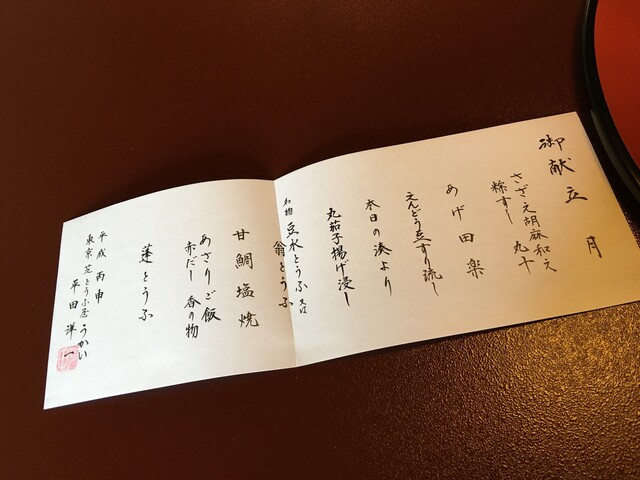 御献立 月
さざえ胡麻和え
粽すし 丸十
あげ田楽
えんどう豆すり流し
本日の湊より
丸茄子揚げ浸し
名物 豆水とうふ 又は
翁とうふ
甘鯛塩焼
あさりご飯
赤だし 香の物
蓬とうふ
平成丙申
東京 芝とうふ屋うかい
平田洋一